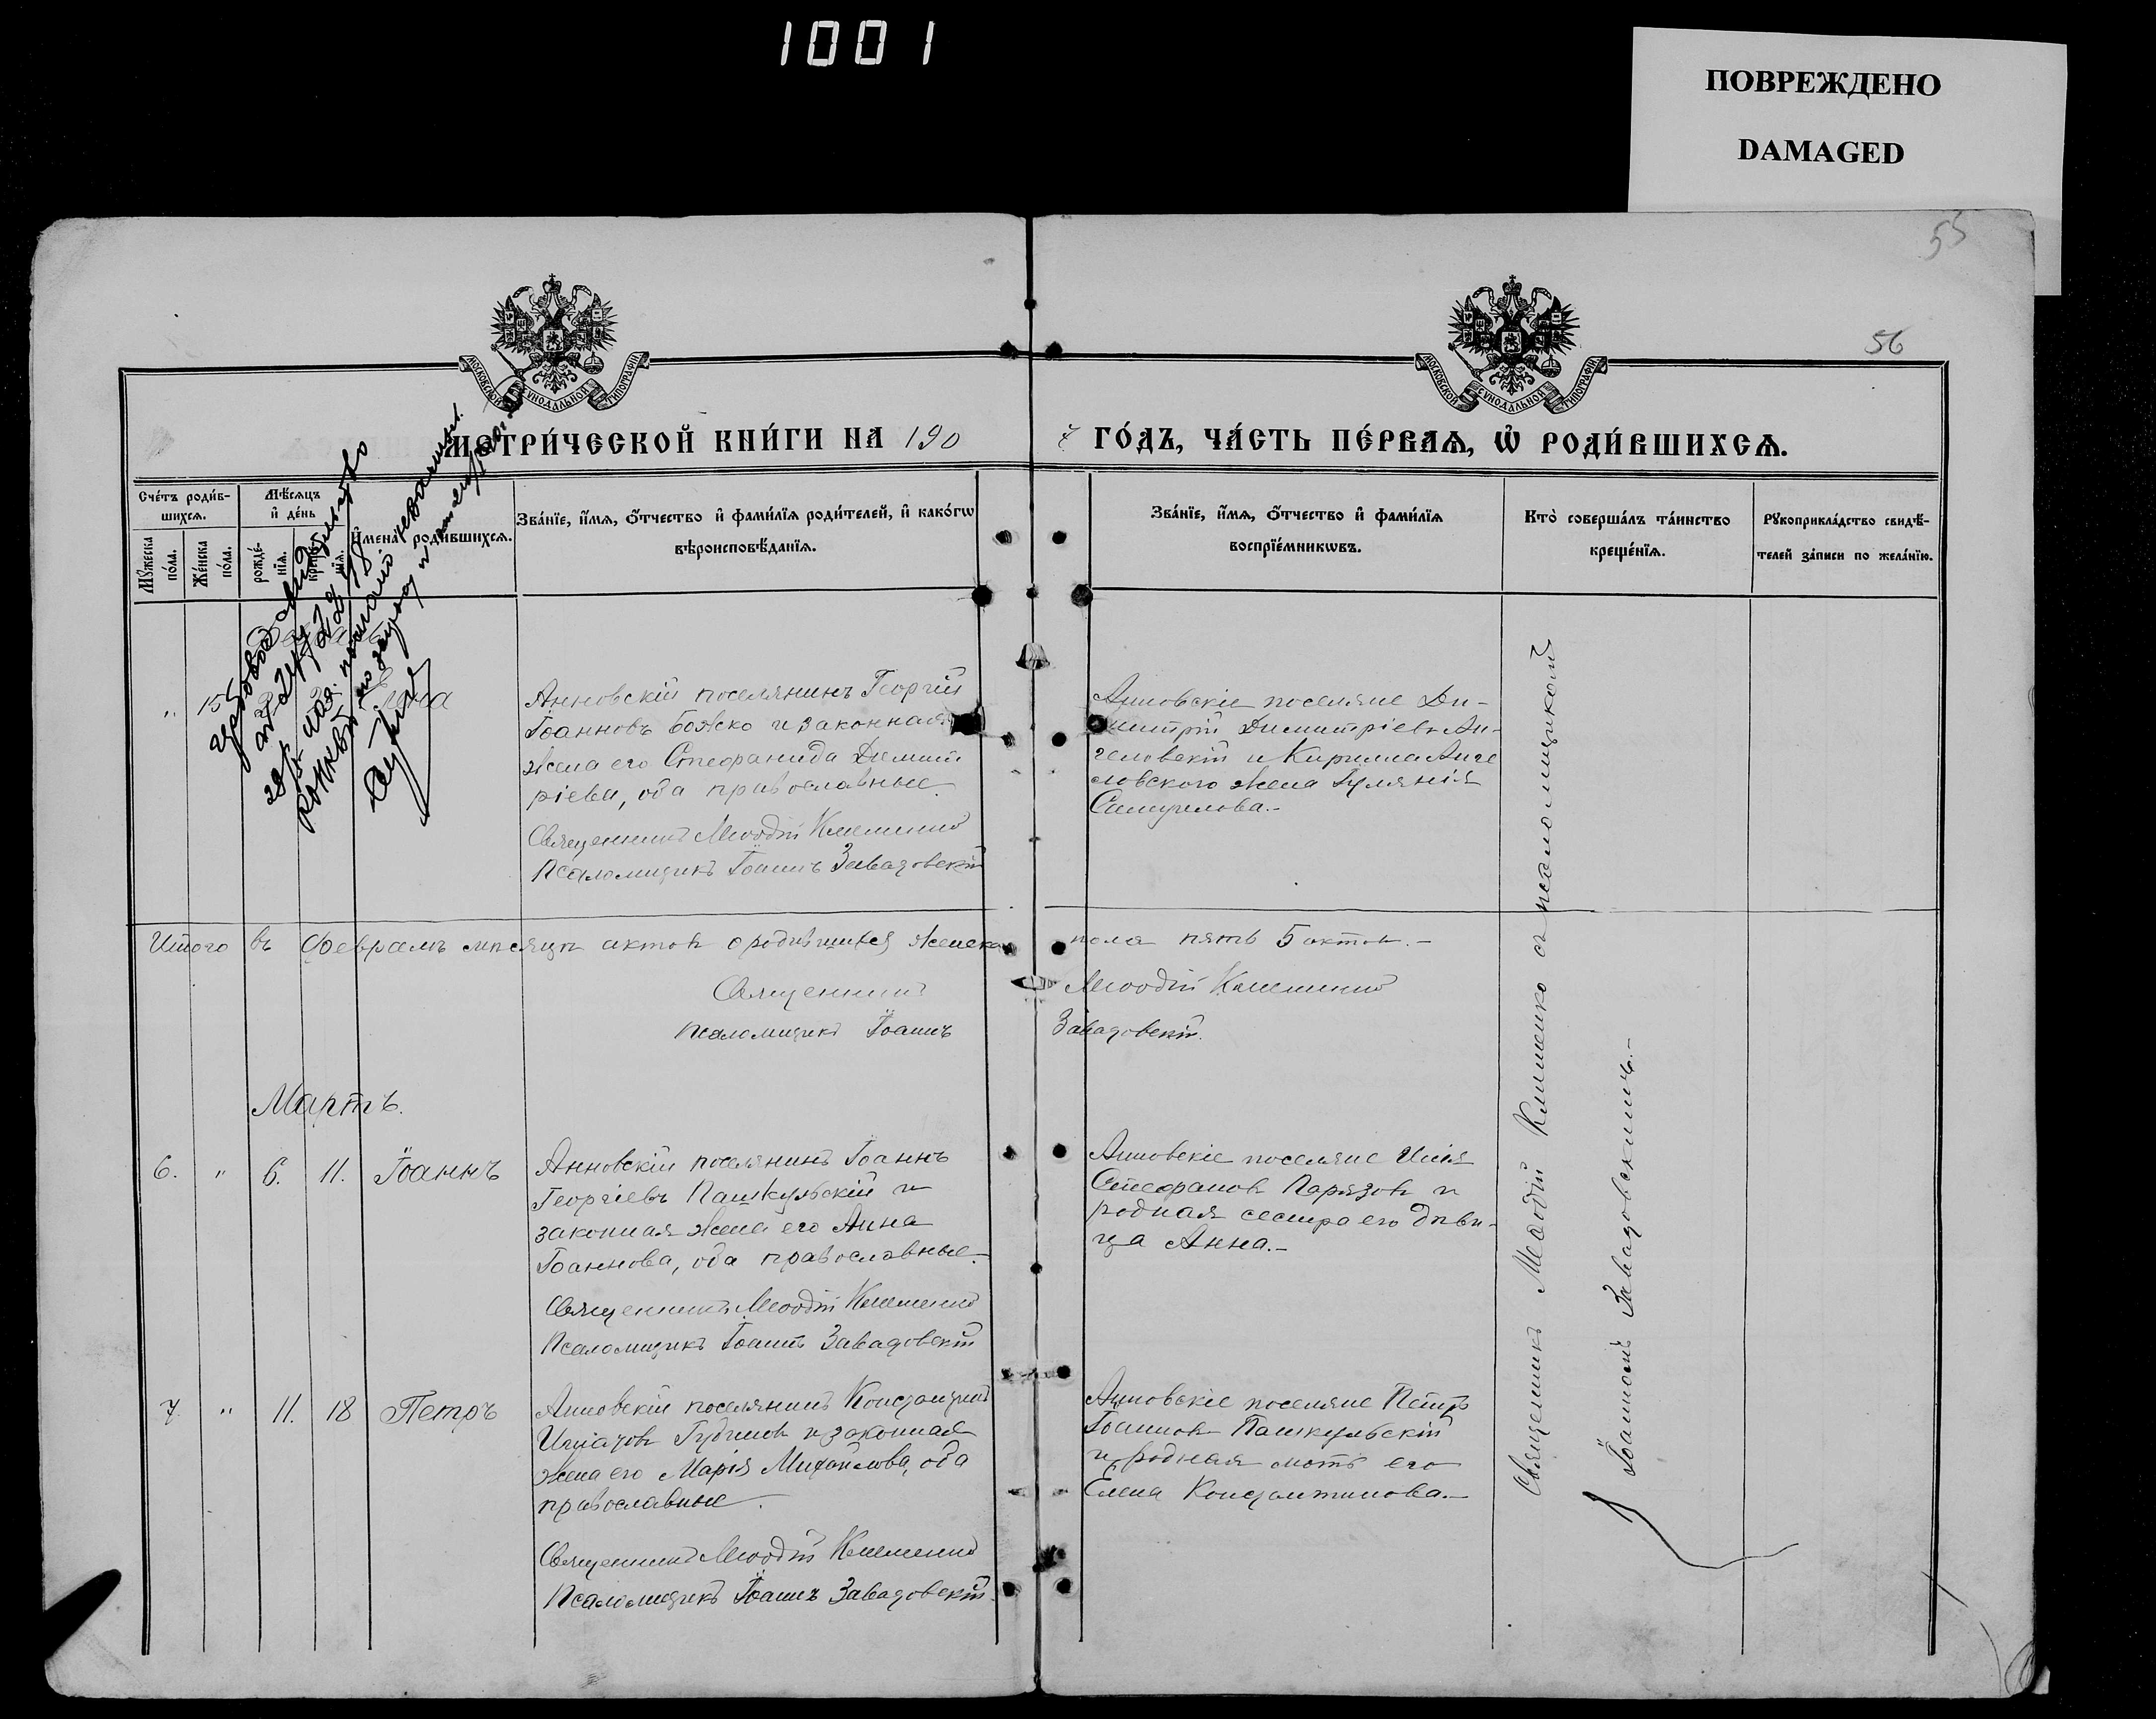 1001
ПОВРЕЖДЕНО
DAMAGED
55
56
МОСКОВСКОЙ СѴНОДАЛЬНОЙ ТИПОГРАФІИ
МОСКОВСКОЙ СѴНОДАЛЬНОЙ ТИПОГРАФІИ
МЕТРИ́ЧЕСКОЙ КНИ́ГИ НА 190
7 ГО́ДЪ, ЧА́СТЬ ПЕ́РВАѦ, Ѡ҆ РОДИ́ВШИХСѦ.
Сче́тъ роди́в-
шихсѧ.
Мꙋ́жеска по́ла.
Же́нска по́ла.
Мѣ́сѧцъ
и҆ де́нь
рожде́-
нїѧ.
креще́-
нїѧ.
И҆мена̀ роди́вшихсѧ.
Зва́нїе, и҆́мѧ, ѻ҆́тчество и҆ фами́лїѧ роди́телей, и҆ како́гѡ
вѣроисповѣ́данїѧ.
Зва́нїе, и҆́мѧ, ѻ҆́тчество и҆ фами́лїѧ
воспрїе́мникѡвъ.
Кто̀ соверша́лъ та́инство
креще́нїѧ.
Рꙋкоприкла́дство свидѣ́-
телей за́писи по жела́нїю.
" 15
Анновскій поселянинъ Георгій
Іоанновъ Божко и законная
жена его Стефанида Димит
ріева, оба православные.
Священникъ Меѳодій Клименко
Псаломщикъ Іоаннъ Завадовскій
Анновскіе поселяне Ди-
митрій Димитріевъ Ан-
геловскій и Кирилла Анге
ловского жена Іулянія
Самуилова.-
Итого въ Февралѣ мѣсяцѣ актовъ о родившихся женска
пола пять 5 актов.-
Священникъ
Меѳодій Клименко
Псаломщикъ Іоаннъ
Завадовскій.
Мартъ.
6. " 6. 11. Іоаннъ
Анновскій поселянинъ Іоаннъ
Георгіевъ Пашкульскій и
законная жена его Анна
Іоаннова, оба православные.-
Священникъ Меѳодій Клименко
Псаломщикъ Іоаннъ Завадовскій
Анновскіе поселяне Илія
Стефановъ Парязовъ и
родная сестра его дѣви-
ца Анна.-
7 " 11. 18 Петръ
Анновскій поселянинъ Константинъ
Игнатовъ и законная
жена его Марія Михайлова, оба
православные.
Священникъ Меѳодій Клименко
Псаломщикъ Іоаннъ Завадовскій.
Анновскіе поселяне Петръ
Іоанновъ Пашкульскій
и родная мать его
Елена Константинова.-
Священникъ Меѳодій Клименко съ псаломщикомъ
Іоанномъ Завадовскимъ.-